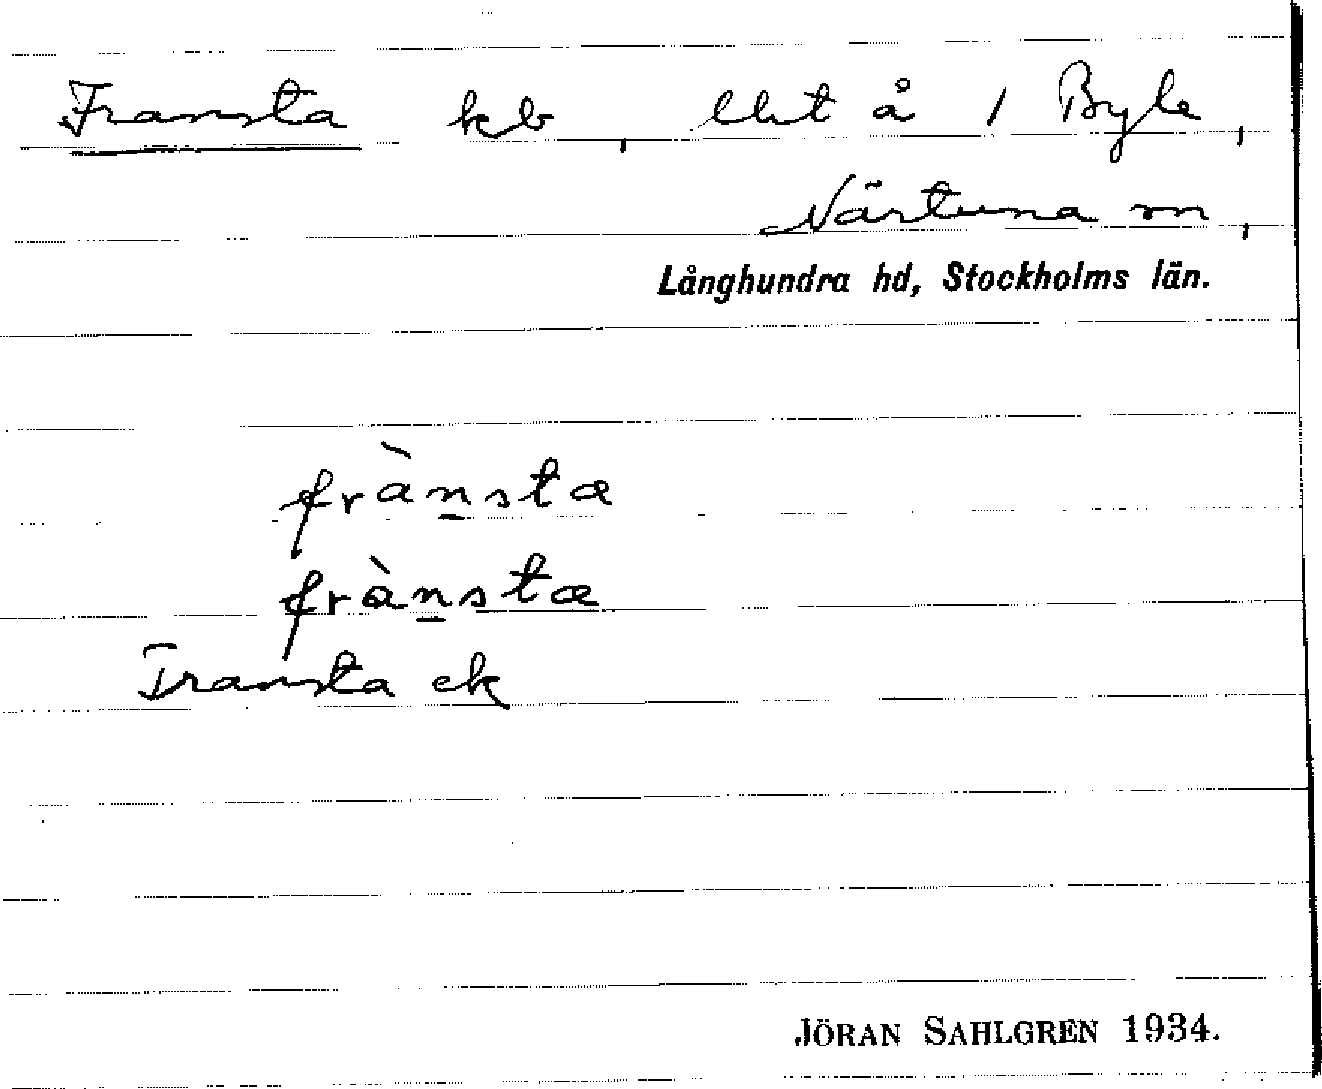 Fransta kb, llht å 1 Byle,
Närtuna sn,
Långhundra hd, Stockholms län.
frànsta
frànsta
Fransta ek
JÖRAN SAHLGREN 1934.